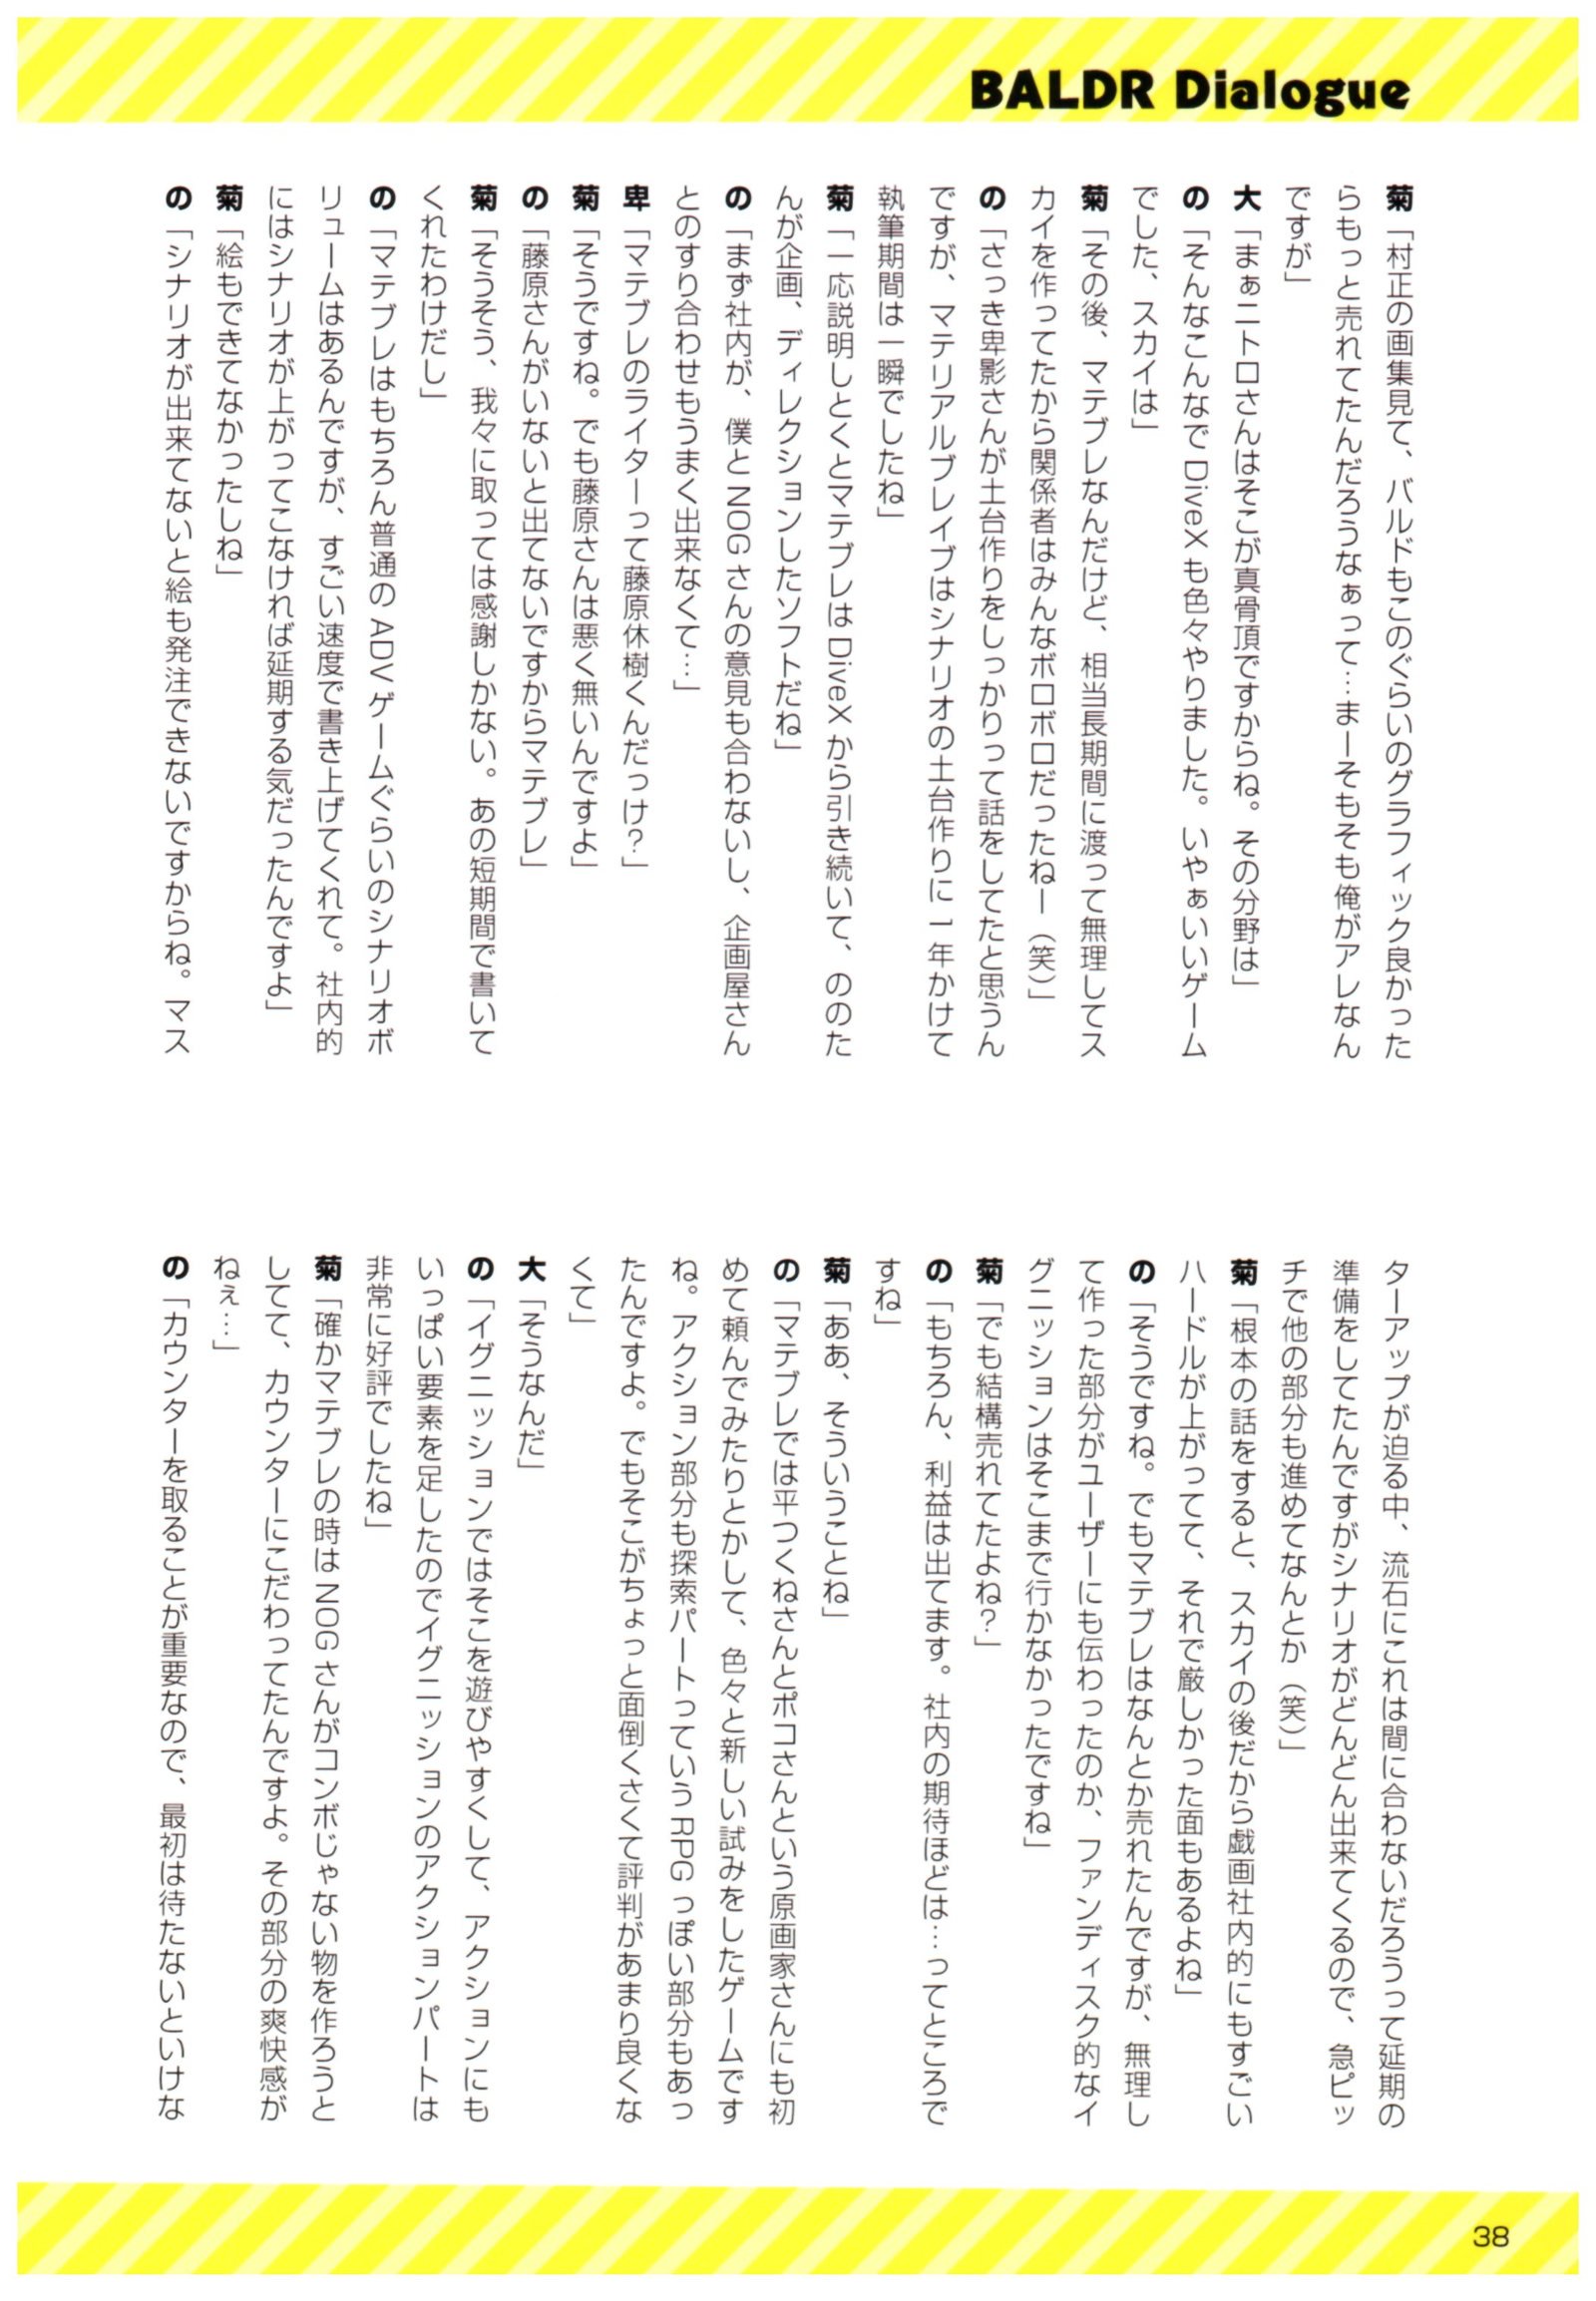 BALDR Dialogue
菊「村正の画集見て、バルドもこのぐらいのグラフィック良かった
らもっと売れてたんだろうなぁって…まーそもそも俺がアレなん
ですが」
大「まぁニトロさんはそこが真骨頂ですからね。その分野は」
の「そんなこんなで DiveX も色々やりました。いやぁいいゲーム
でした、スカイは」
菊「その後、マテブレなんだけど、相当長期間に渡って無理してス
カイを作ってたから関係者はみんなボロボロだったねー（笑）」
の「さっき卑影さんが土台作りをしっかりって話をしてたと思うん
ですが、マテリアルブレイブはシナリオの土台作りに一年かけて
執筆期間は一瞬でしたね」
菊「一応説明しとくとマテブレは DiveX から引き続いて、ののた
んが企画、ディレクションしたソフトだね」
の「まず社内が、僕と NOG さんの意見も合わないし、企画屋さん
とのすり合わせもうまく出来なくて…」
卑「マテブレのライターって藤原休樹くんだっけ？」
菊「そうですね。でも藤原さんは悪く無いんですよ」
の「藤原さんがいないと出てないですからマテブレ」
菊「そうそう、我々に取っては感謝しかない。あの短期間で書いて
くれたわけだし」
の「マテブレはもちろん普通の ADV ゲームぐらいのシナリオボ
リュームはあるんですが、すごい速度で書き上げてくれて。社内的
にはシナリオが上がってこなければ延期する気だったんですよ」
菊「絵もできてなかったしね」
の「シナリオが出来てないと絵も発注できないですからね。マス
ターアップが迫る中、流石にこれは間に合わないだろうって延期の
準備をしてたんですがシナリオがどんどん出来てくるので、急ピッ
チで他の部分も進めてなんとか（笑）」
菊「根本の話をすると、スカイの後だから戯画社内的にもすごい
ハードルが上がってて、それで厳しかった面もあるよね」
の「そうですね。でもマテブレはなんとか売れたんですが、無理し
て作った部分がユーザーにも伝わったのか、ファンディスク的なイ
グニッションはそこまで行かなかったですね」
菊「でも結構売れてたよね？」
の「もちろん、利益は出てます。社内の期待ほどは…ってところで
すね」
菊「ああ、そういうことね」
の「マテブレでは平つくねさんとポコさんという原画家さんにも初
めて頼んでみたりとかして、色々と新しい試みをしたゲームです
ね。アクション部分も探索パートっていう RPG っぽい部分もあっ
たんですよ。でもそこがちょっと面倒くさくて評判があまり良くな
くて」
大「そうなんだ」
の「イグニッションではそこを遊びやすくして、アクションにも
いっぱい要素を足したのでイグニッションのアクションパートは
非常に好評でしたね」
菊「確かマテブレの時は NOG さんがコンボじゃない物を作ろうと
してて、カウンターにこだわってたんですよ。その部分の爽快感が
ねぇ…」
の「カウンターを取ることが重要なので、最初は待たないといけな
38